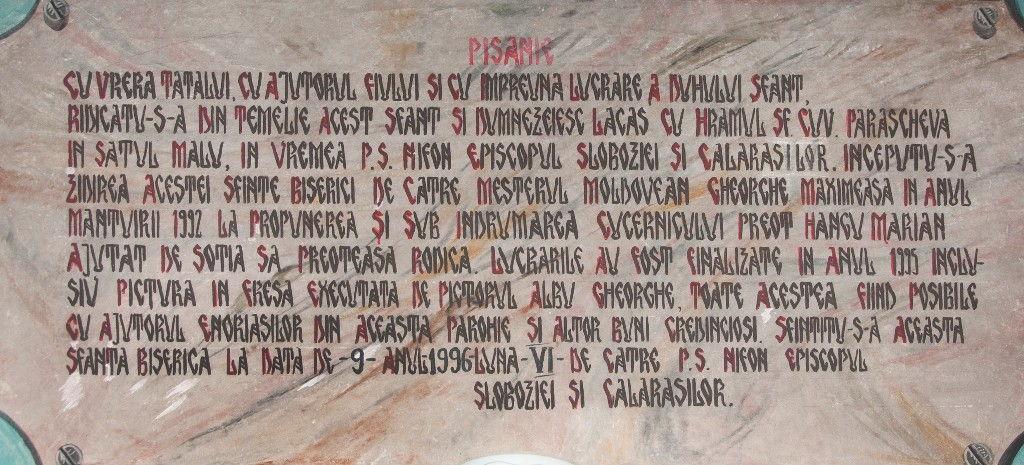 PISANIE
CU VREREA TATALUI, CU AJUTORUL FIULUI SI CU IMPREUNA LUCRARE A DUHULUI SFANT,
RIDICATU-S-A DIN TEMELIE ACEST SFANT SI DUMNEZEIESC LACAS CU HRAMUL SF. CUV. PARASCHEVA
IN SATUL MALU, IN VREMEA P.S. NIFON EPISCOPUL SLOBOZIEI SI CALARASILOR. INCEPUTU-S-A
ZIDIREA ACESTEI SFINTE BISERICI DE CATRE MESTERUL MOLDOVEAN GHEORGHE MAXIMEASA IN ANUL
MANTUIRII 1992 LA PROPUNEREA SI SUB INDRUMAREA CUCERNICULUI PREOT HANGU MARIAN
AJUTAT DE SOTIA SA PREOTEASA RODICA. LUCRARILE AU FOST FINALIZATE IN ANUL 1995 INCLU-
SIV PICTURA IN FRESA EXECUTATA DE PICTORUL ALBU GHEORGHE, TOATE ACESTEA FIIND POSIBILE
CU AJUTORUL ENORIASILOR DIN ACEASTA PAROHIE SI ALTOR BUNI CREDINCIOSI. SFINTITU-S-A ACEASTA
SFANTA BISERICA LA DATA DE -9- ANUL 1996 LUNA -VI- DE CATRE P.S. NIFON EPISCOPUL
SLOBOZIEI SI CALARASILOR.